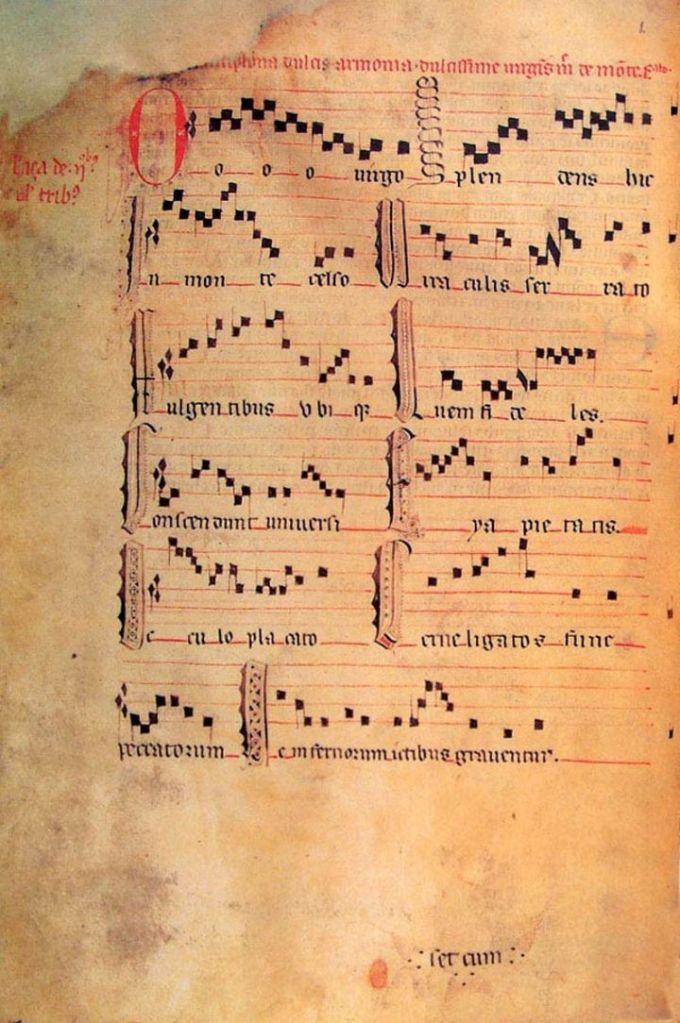 1.
antiphona dulcis armonia. dulcissime uirgis m de mote. Sto.
Caça de .ij.bz
ul' trib9
O o o o uirgo Splen dens hic
In mon te celso Mira culis ser ra to
Fulgentibus vbi qz Quem fi de les.
Conscendunt uniuersi Eya pie ta tis.
Oc cu lo placato Cerne ligatos fune
peccatorum Ne infernorum ictibus grauentur.
set cum